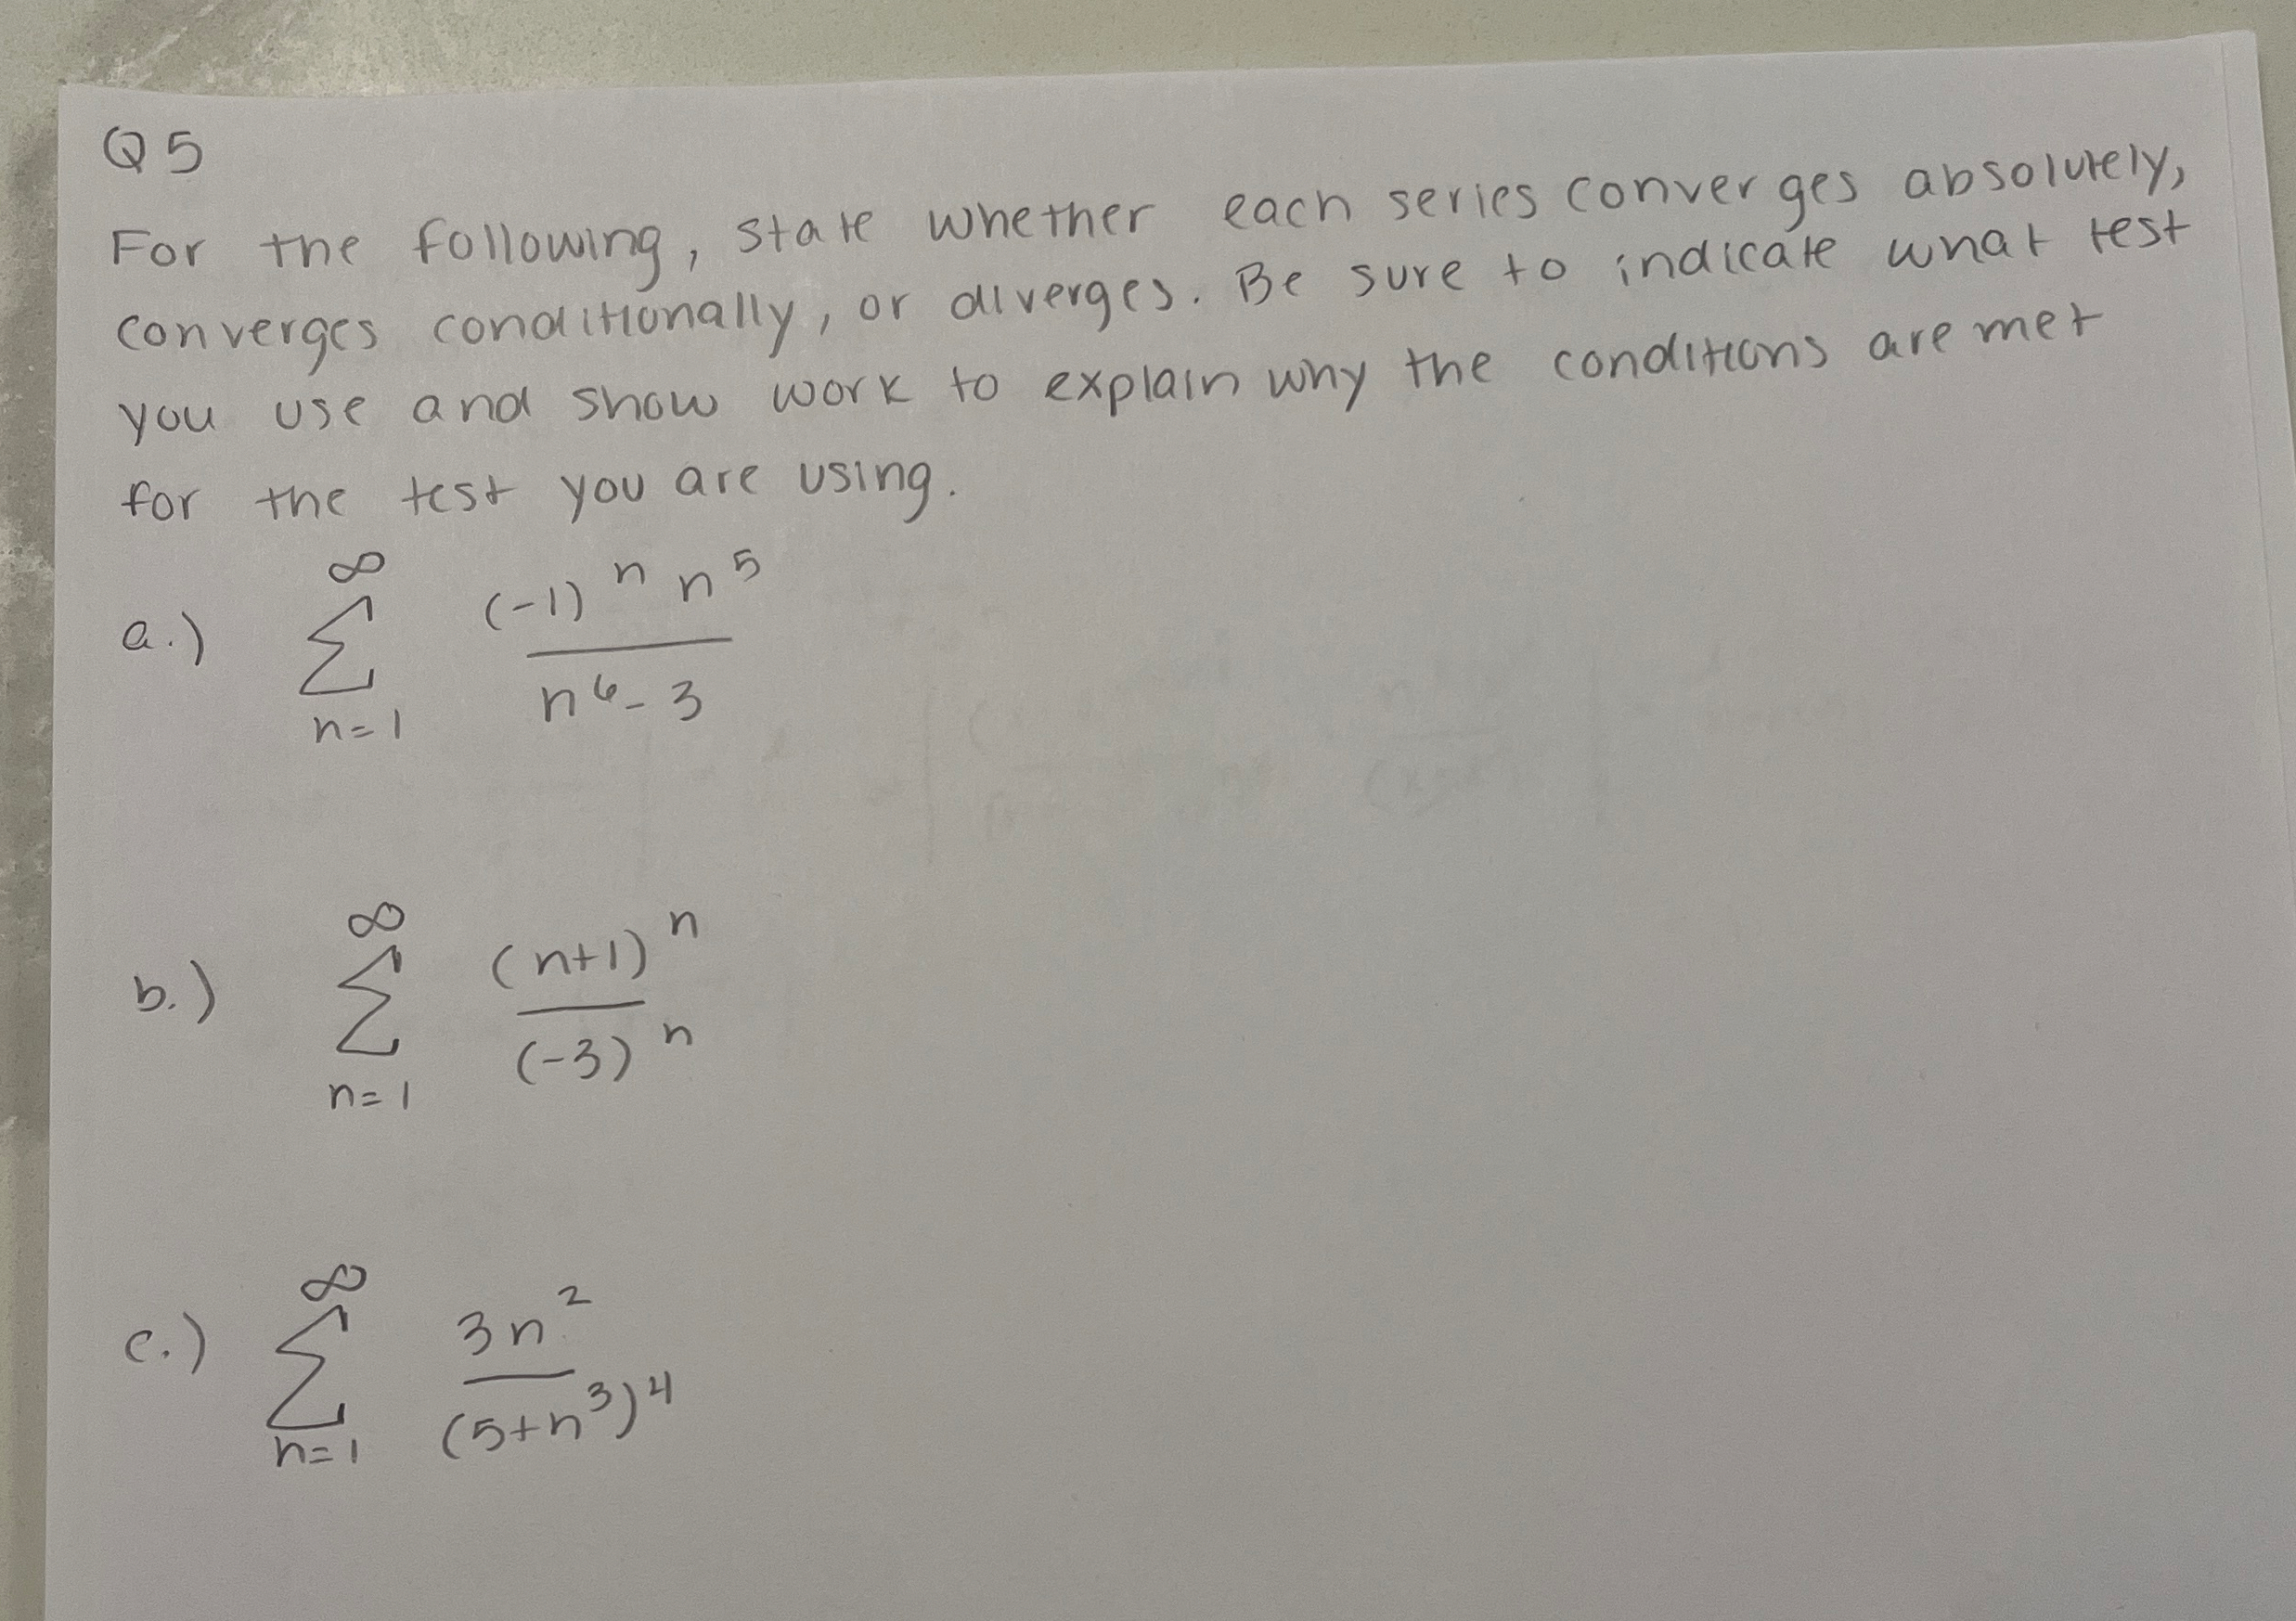 Q5
For the following, state whether each series converges absolutely,
converges conditionally, or diverges. Be sure to indicate what test
you use and show work to explain why the conditions are met
for the test you are using.
a.) ∞ Σ n=1 (-1)^n n^5 / n^6 - 3
b.) ∞ Σ n=1 (n+1)^n / (-3)^n
c.) ∞ Σ n=1 3n^2 / (5+n^3)^4